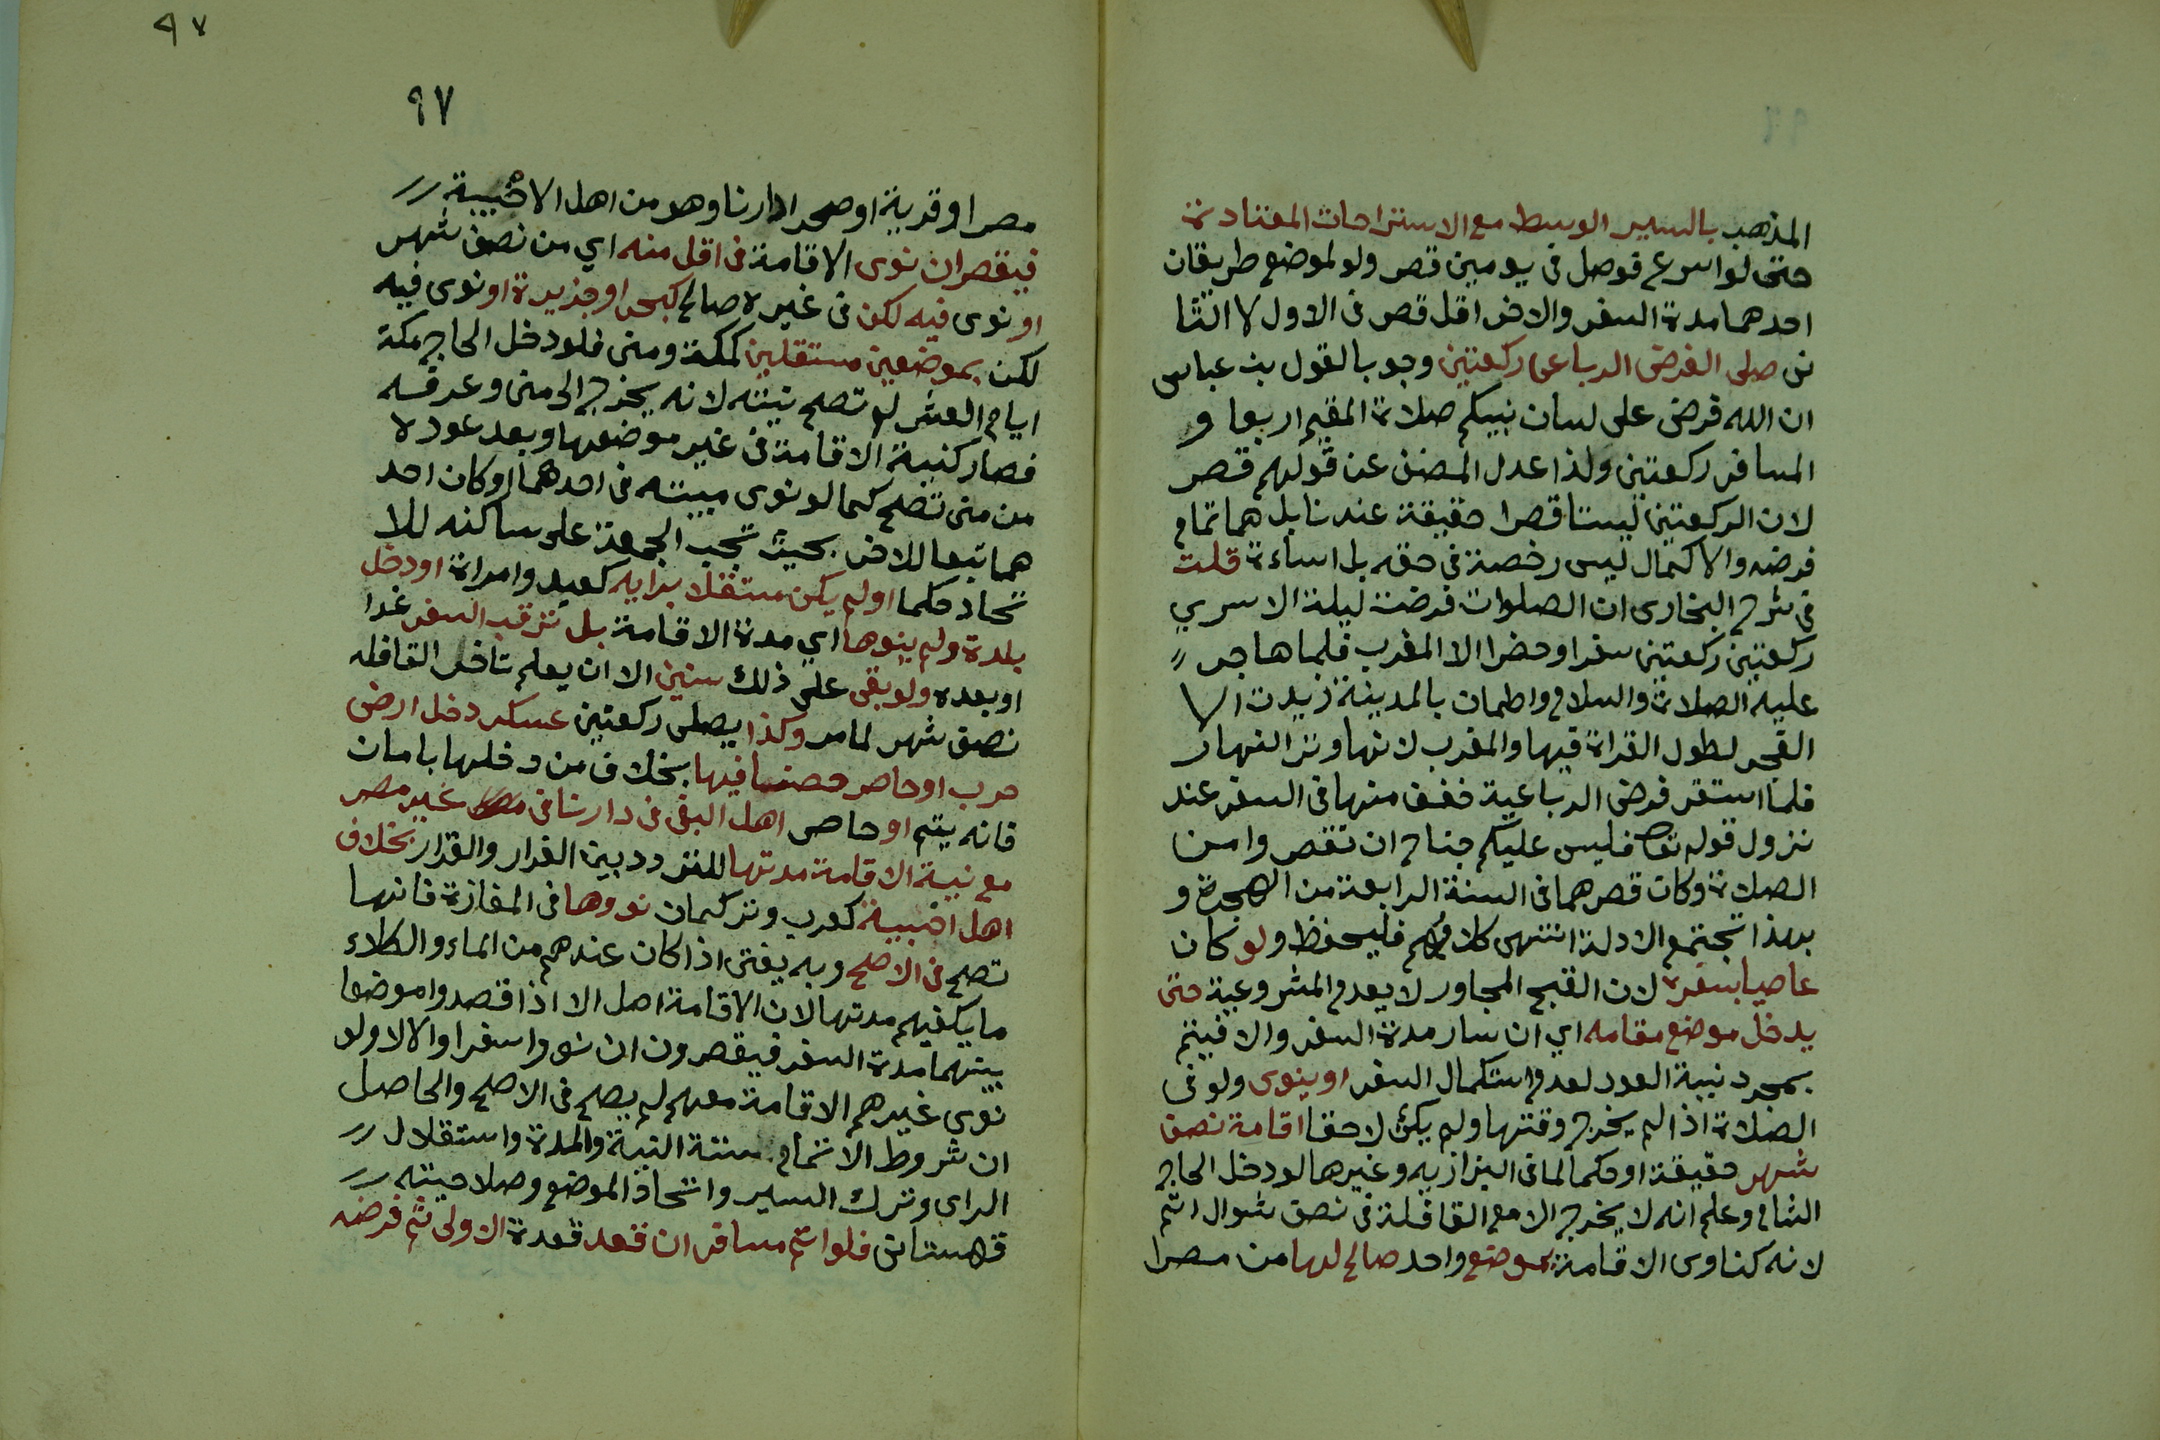 المذهب بالسير الوسط مع الاستراحات المعتادة
حتى لو اسرع فوصل فى يومين قصر ولو لموضع طريقان
احدهما مدة السفر والاخر اقل قصر فى الاول لا الثا
نى صلى الفرض الرباعى ركعتين وجوبا لقول بن عباس
ان الله فرض على لسان نبيكم صلاة المقيم اربعا و
المسافر ركعتين ولذا عدل المصنف عن قولهم قصر
لان الركعتين ليستا قصرا حقيقة عندنا بل هما تمام
فرضه والاكمال ليس رخصة فى حقه بل اساءة قلت
فى شرح البخارى ان الصلوات فرضت ليلة الاسري
ركعتين ركعتين سفرا وحضرا الا المغرب فلما هاجر
عليه الصلاة والسلام واطمان بالمدينة زيدت الا
الفجر لطول القراة فيها والمغرب لانها وتر النهار
فلما استقر فرض الرباعية خفف منها فى السفر عند
نزول قوله تعا فليس عليكم جناح ان تقصروا من
الصلاة وكان قصرهما فى السنة الرابعة من الهجرة و
بهذا تجتمع الادلة انتهى كلامهم فليحفظ ولو كان
عاصيا بسفره لان القبح المجاور لا يعدم المشروعية حتى
يدخل موضع مقامه اي ان سار مدة السفر والا فيتم
بمجرد نية العود لعدم استكمال السفر او ينوى ولو فى
الصلاة اذا لم يخرج وقتها ولم يكن لاحقا اقامة نصف
شهر حقيقة او حكما لما فى البزازيه وغيرها لو دخل الحاج
الشام وعلم انه لا يخرج الا مع القافلة فى نصف شوال اتم
لانه كناوى الاقامة بموضع واحد صالح لها من مصرا
٩٧
٩٧
مصر او قرية او صحرا دارنا وهو من اهل الاخبية
فيقصر ان نوى الاقامة فى اقل منه اي من نصف شهر
او نوى فيه لكن فى غيره صالح كبحر او جزيرة او نوى فيه
لكن بموضعين مستقلين كمكة ومنى فلو دخل الحاج مكة
ايام العشر لم تصح نيته لانه يخرج الى منى وعرفه
فصار كنية الاقامة فى غير موضعها وبعد عوده
من منى تصح كما لو نوى مبيته فى احدهما او كان احد
هما تبعا للاخر بحيث تجب الجمعة على ساكنه للا
تحاد حكما او لم يكن مستقلا برايه كعبد وامراة او دخل
بلدة ولم ينوها اي مدة الاقامة بل ترقب السفر غدا
او بعده ولو بقى على ذلك سنين الا ان يعلم تاخر القافله
نصف شهر لما مر وكذا يصلى ركعتين عسكر دخل ارض
حرب او حاصر حصنا فيها بخلاف من دخلها بامان
فانه يتم او حاصر اهل البغى فى دارنا فى غير مصر
مع نية الاقامة مدتها للتردد بين الفرار والقرار بخلاف
اهل اخبية كعرب وتركمان نووها فى المفازة فانها
تصح فى الاصح وبه يفتى اذا كان عندهم من الماء والكلاء
ما يكفيهم مدتها لان الاقامة اصل الا اذا قصدوا موضعا
بينهما مدة السفر فيقصرون ان نووا سفرا والا لا ولو
نوى غيرهم الاقامة معهم لم يصح فى الاصح والحاصل
ان شروط الاتمام ستة النية والمدة واستقلال
الراى وترك السير واتحاد الموضع وصلاحيته
قهستانى فلو اتم مسافر ان قعد قعدة الاولى تم فرضه